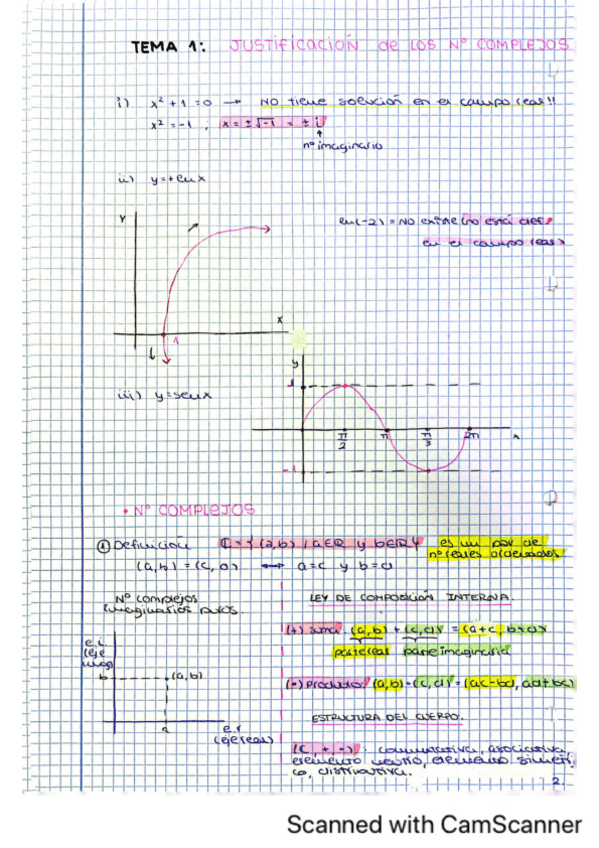 TEMA 1: JUSTIFICACIÓN de LOS Nº COMPLEJOS
i) x² + 1 = 0 → NO tiene solución en el campo real!!
x² = -1 ; x = ±√-1 = ± i
nº imaginario
ii) y = + ln x
y
ln(-2) = NO existe (no está def
en el campo real)
x
1
y
1
iii) y = sen x
π/2 π π/3 2π x
-1
• Nº COMPLEJOS
① Definición ℂ = {(a,b) / a∈R y b∈R} es un par de
nº reales ordenados
(a,b) = (c,d) ↔ a=c y b=d
Nº complejos
imaginarios puros.
LEY DE COMPOSICIÓN INTERNA.
(+) suma: (a,b) + (c,d) = (a+c, b+d)
parte real parte imaginaria
e.i
(eje
imag)
b (a,b)
a
e.r
(eje real)
(·) Producto: (a,b)·(c,d) = (ac-bd, ad+bc)
ESTRUCTURA DEL CUERPO.
(ℂ, +, ·): conmutativa, asociativa,
elemento neutro, elemento simétri
co, distributiva.
2.
Scanned with CamScanner